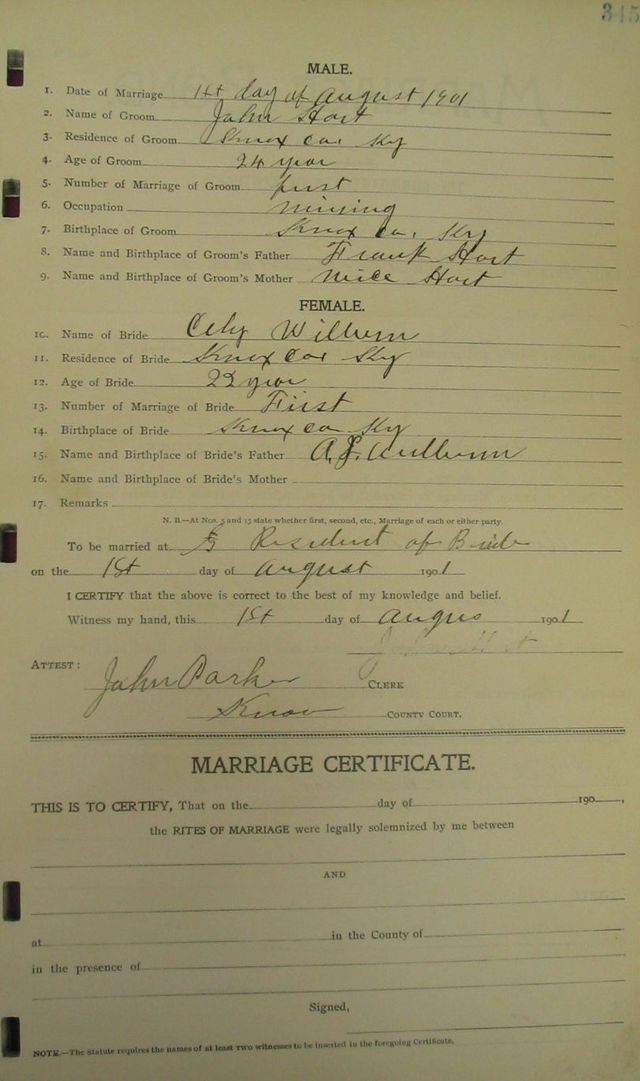 345
MALE.
1. Date of Marriage 1st day of August 1901
2. Name of Groom John Hart
3. Residence of Groom Knox Co. Ky
4. Age of Groom 24 year
5. Number of Marriage of Groom first
6. Occupation mining
7. Birthplace of Groom Knox Co. Ky
8. Name and Birthplace of Groom's Father Frank Hart
9. Name and Birthplace of Groom's Mother Hart
FEMALE.
10. Name of Bride
11. Residence of Bride Knox Co Ky
12. Age of Bride 22 year
13. Number of Marriage of Bride First
14. Birthplace of Bride Knox Co Ky
15. Name and Birthplace of Bride's Father A. J.
16. Name and Birthplace of Bride's Mother
17. Remarks
N. B.—At Nos. 5 and 13 state whether first, second, etc., Marriage of each or either party.
To be married at Resident of Bride
on the 1st day of August 1901
I CERTIFY that the above is correct to the best of my knowledge and belief.
Witness my hand, this 1st day of Augus 1901
ATTEST:
John Parker CLERK
Knox COUNTY COURT.
MARRIAGE CERTIFICATE.
THIS IS TO CERTIFY, That on the day of 190 ,
the RITES OF MARRIAGE were legally solemnized by me between
AND
at in the County of
in the presence of
Signed,
NOTE.—The Statute requires the names of at least two witnesses to be inserted in the foregoing Certificate.